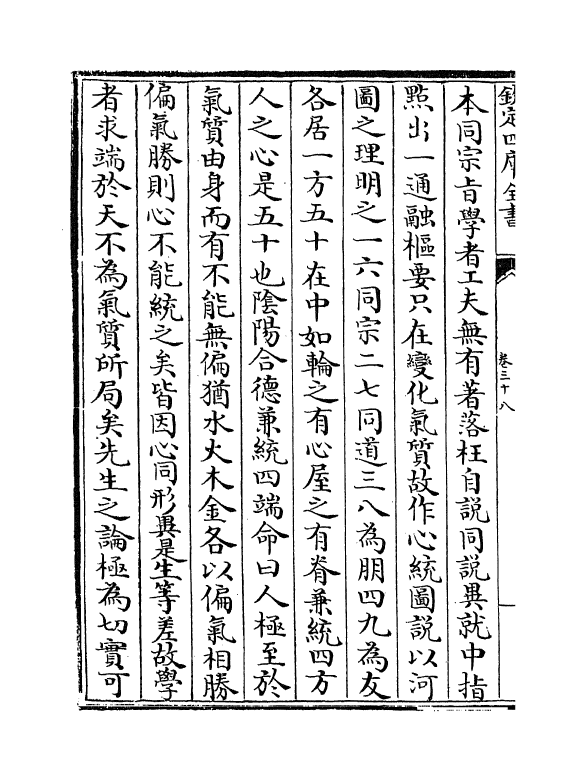 欽定四庫全書
卷三十八
本同宗㫖學者工夫無有著落枉自説同説異就中指
點出一通融樞要只在變化氣質故作心統圖説以河
圖之理明之一六同宗二七同道三八為朋四九為友
各居一方五十在中如輪之有心屋之有脊兼統四方
人之心是五十也隂陽合德兼統四端命曰人極至於
氣質由身而有不能無偏猶水火木金各以偏氣相勝
偏氣勝則心不能統之矣皆因心同形異是生等差故學
者求端於天不為氣質所局矣先生之論極為切實可